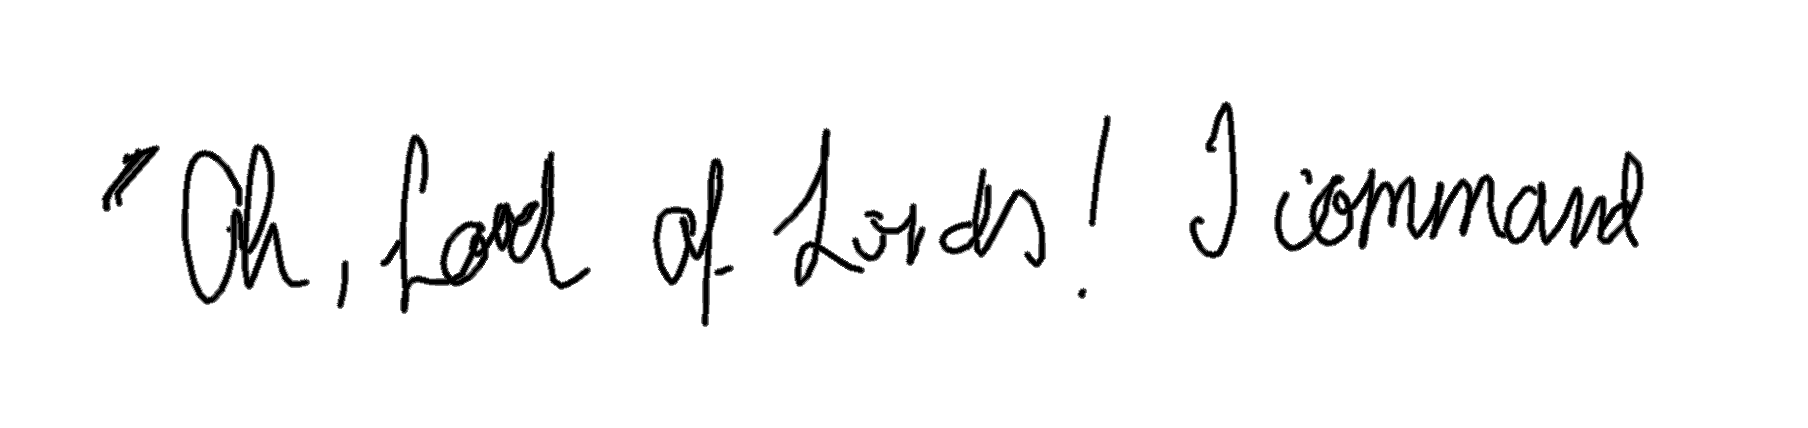 "Oh, Lord of Lords! I command